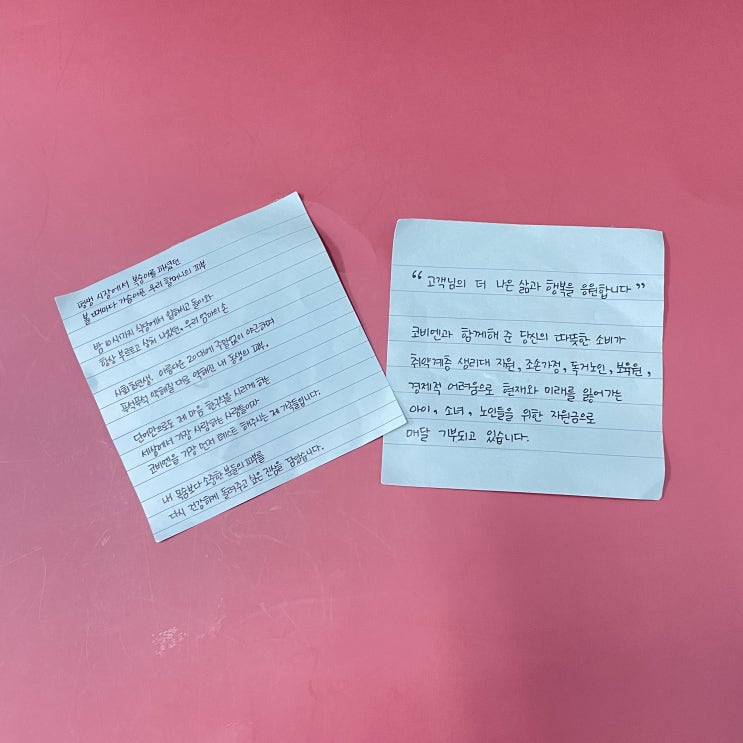 평생 시장에서 복숭아를 파셨던
볼 때마다 가슴아픈 우리 할머니의 피부
밤 10시까지 식당에서 일하시고 돌아와
항상 부르트고 상처 나있던, 우리 엄마의 손
사회초년생, 아름다운 20대에 주말없이 야근하며
푸석푸석 약해질 대로 약해진 내 동생의 피부.
단어만으로도 제 마음 한구석을 시리게 하는
세상에서 가장 사랑하는 사람들이자
코비엔을 가장 먼저 테스트 해주시는 제 가족들입니다.
내 목숨보다 소중한 분들의 피부를
다시 건강하게 돌려주고 싶은 진심을 담았습니다.
“고객님의 더 나은 삶과 행복을 응원합니다”
코비엔과 함께해 준 당신의 따뜻한 소비가
취약계층 생리대 지원, 조손가정, 독거노인, 보육원,
경제적 어려움으로 현재와 미래를 잃어가는
아이, 소녀, 노인들을 위한 지원금으로
매달 기부되고 있습니다.